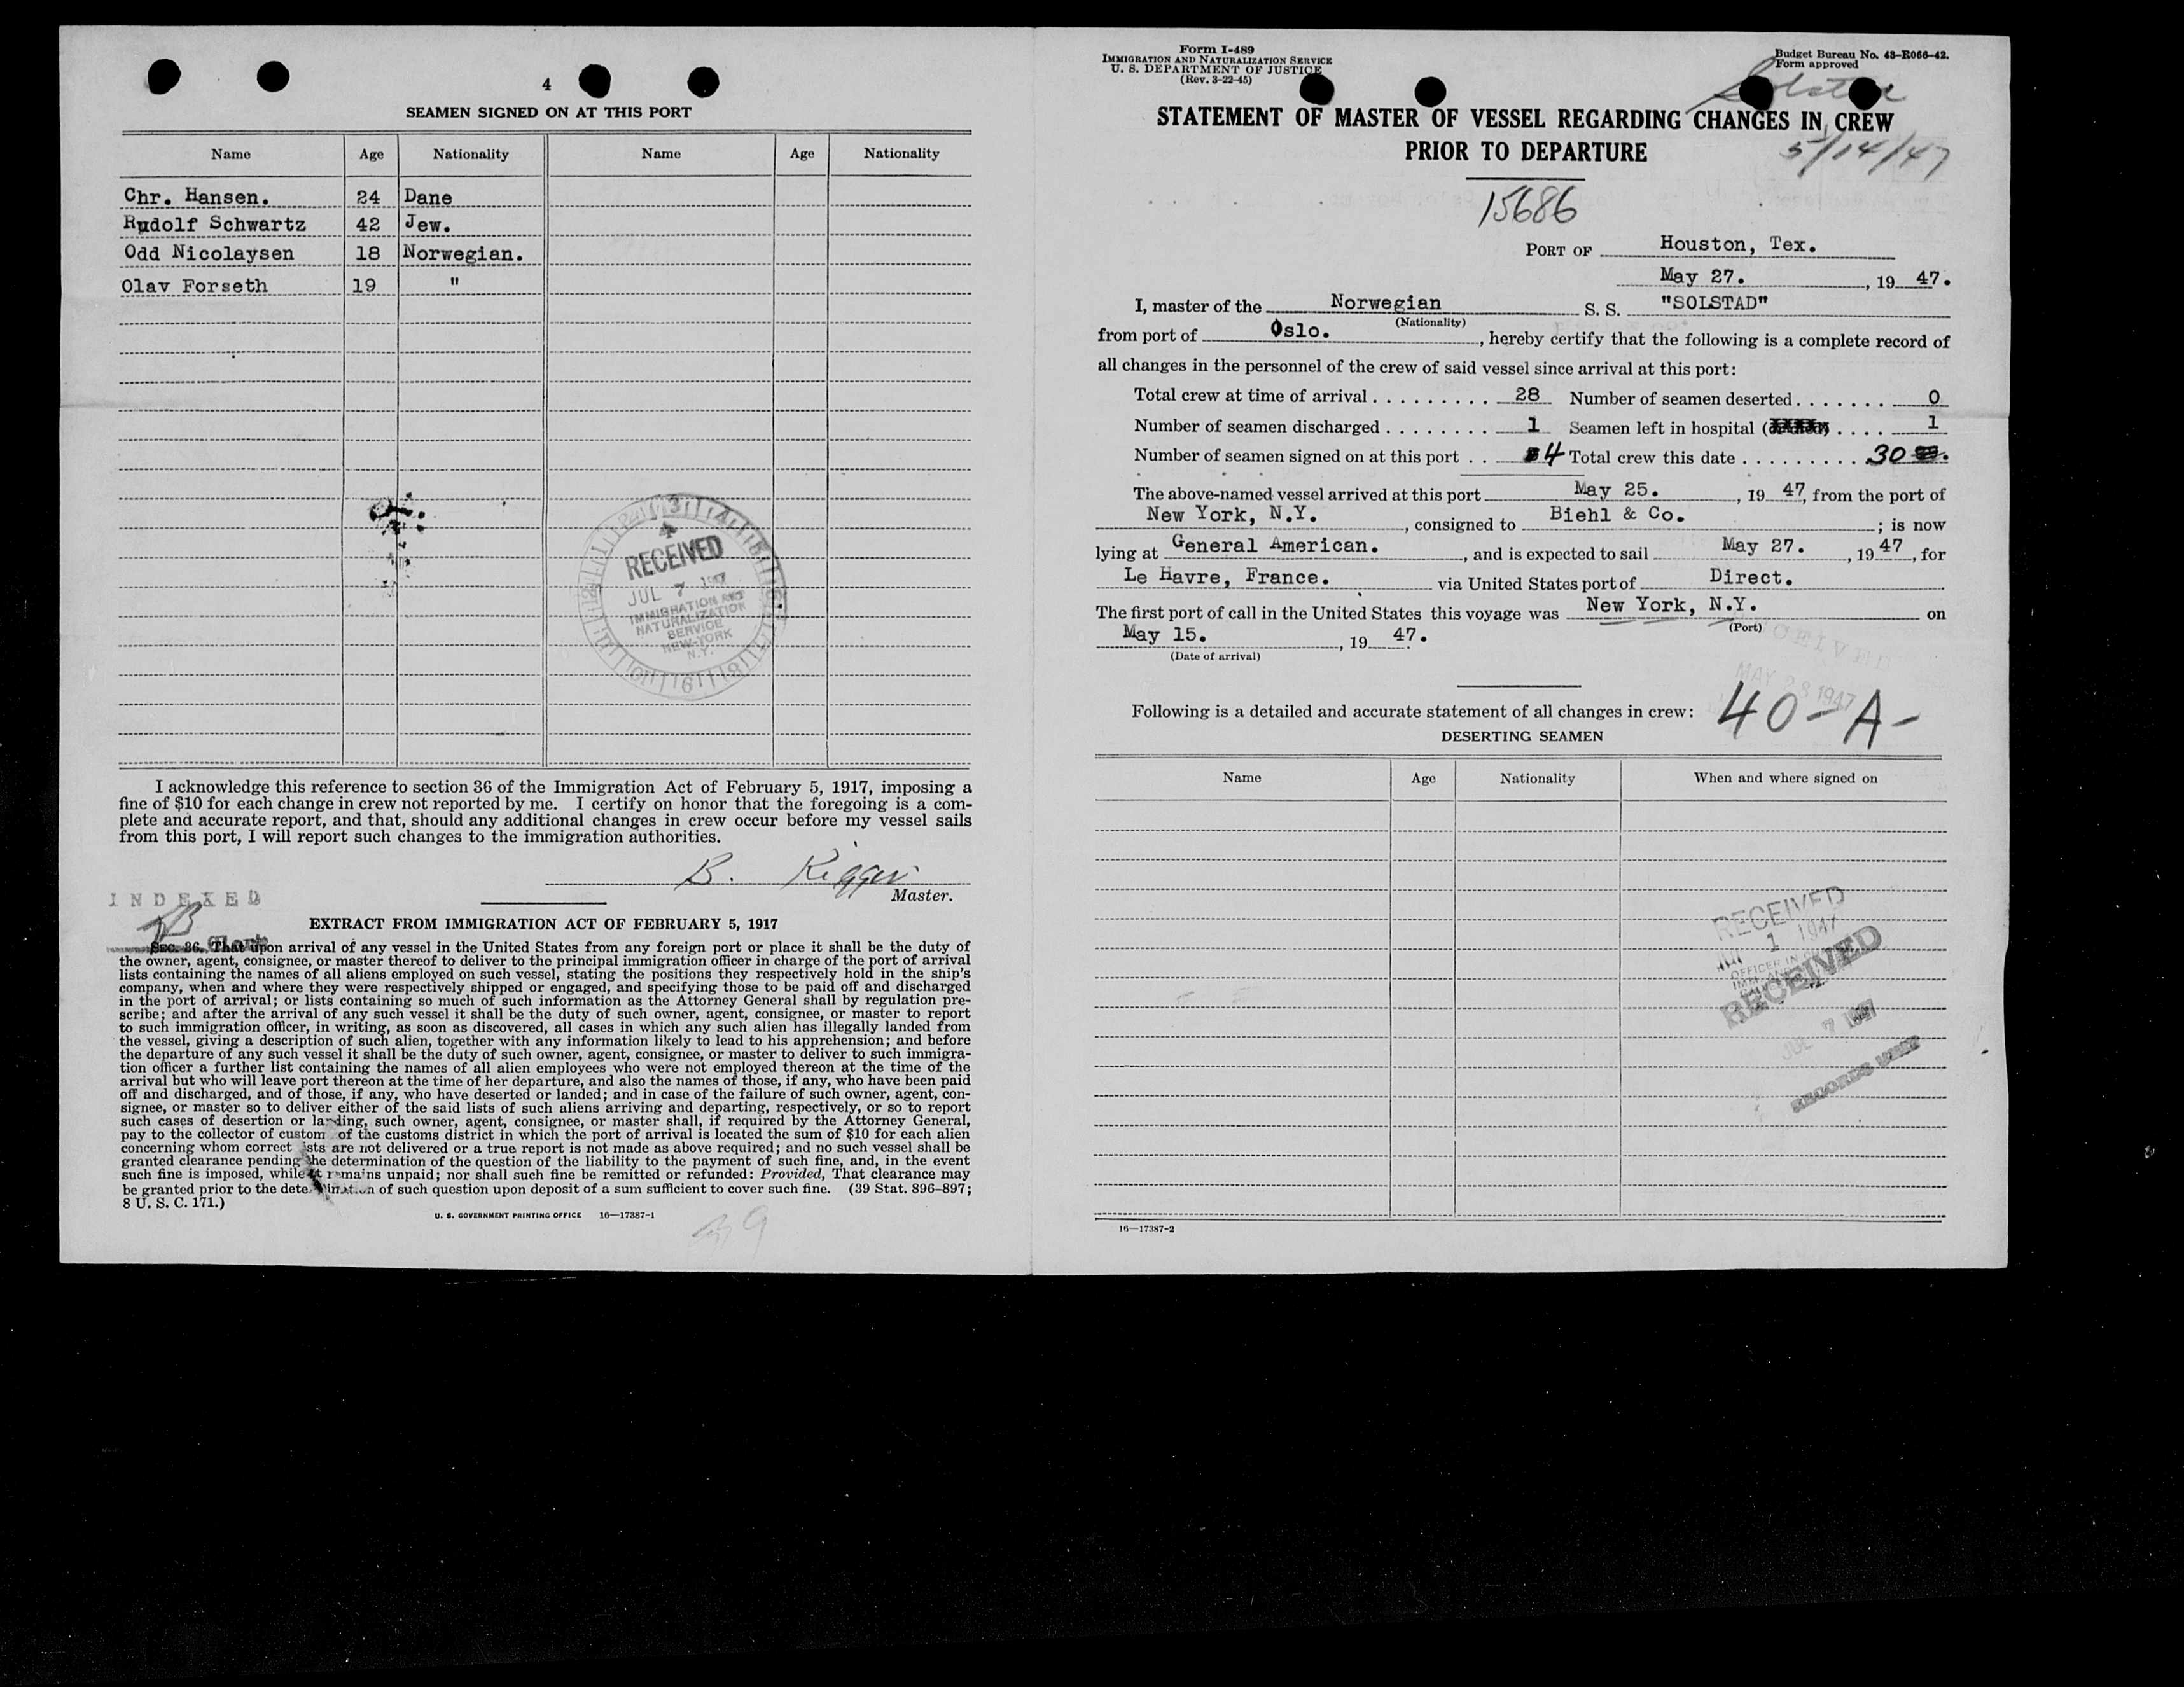 4
SEAMEN SIGNED ON AT THIS PORT
Name Age Nationality Name Age Nationality
Chr. Hansen. 24 Dane
Rudolf Schwartz 42 Jew.
Odd Nicolaysen 18 Norwegian.
Olav Forseth 19 "
RECEIVED
JUL 7 1947
IMMIGRATION AND
NATURALIZATION
SERVICE
NEW YORK
N.Y.
I acknowledge this reference to section 36 of the Immigration Act of February 5, 1917, imposing a
fine of $10 for each change in crew not reported by me. I certify on honor that the foregoing is a com-
plete and accurate report, and that, should any additional changes in crew occur before my vessel sails
from this port, I will report such changes to the immigration authorities.
B.
Master.
INDEXED
EXTRACT FROM IMMIGRATION ACT OF FEBRUARY 5, 1917
SEC. 36. That upon arrival of any vessel in the United States from any foreign port or place it shall be the duty of
the owner, agent, consignee, or master thereof to deliver to the principal immigration officer in charge of the port of arrival
lists containing the names of all aliens employed on such vessel, stating the positions they respectively hold in the ship's
company, when and where they were respectively shipped or engaged, and specifying those to be paid off and discharged
in the port of arrival; or lists containing so much of such information as the Attorney General shall by regulation pre-
scribe; and after the arrival of any such vessel it shall be the duty of such owner, agent, consignee, or master to report
to such immigration officer, in writing, as soon as discovered, all cases in which any such alien has illegally landed from
the vessel, giving a description of such alien, together with any information likely to lead to his apprehension; and before
the departure of any such vessel it shall be the duty of such owner, agent, consignee, or master to deliver to such immigra-
tion officer a further list containing the names of all alien employees who were not employed thereon at the time of the
arrival but who will leave port thereon at the time of her departure, and also the names of those, if any, who have been paid
off and discharged, and of those, if any, who have deserted or landed; and in case of the failure of such owner, agent, con-
signee, or master so to deliver either of the said lists of such aliens arriving and departing, respectively, or so to report
such cases of desertion or landing, such owner, agent, consignee, or master shall, if required by the Attorney General,
pay to the collector of customs of the customs district in which the port of arrival is located the sum of $10 for each alien
concerning whom correct lists are not delivered or a true report is not made as above required; and no such vessel shall be
granted clearance pending the determination of the question of the liability to the payment of such fine, and, in the event
such fine is imposed, while it remains unpaid; nor shall such fine be remitted or refunded: Provided, That clearance may
be granted prior to the determination of such question upon deposit of a sum sufficient to cover such fine. (39 Stat. 896–897;
8 U. S. C. 171.)
U. S. GOVERNMENT PRINTING OFFICE 16—17387-1
Form I-489
IMMIGRATION AND NATURALIZATION SERVICE
U. S. DEPARTMENT OF JUSTICE
(Rev. 3-22-45)
Budget Bureau No. 43-R066-42.
Form approved
Solstad
STATEMENT OF MASTER OF VESSEL REGARDING CHANGES IN CREW
PRIOR TO DEPARTURE
5/14/47
15686
PORT OF Houston, Tex.
May 27. , 19 47.
I, master of the Norwegian S. S. "SOLSTAD"
(Nationality)
from port of Oslo. , hereby certify that the following is a complete record of
all changes in the personnel of the crew of said vessel since arrival at this port:
Total crew at time of arrival . . . . . . . . . 28 Number of seamen deserted . . . . . . . 0
Number of seamen discharged . . . . . . . . 1 Seamen left in hospital ( ) . . . . 1
Number of seamen signed on at this port . . 4 Total crew this date . . . . . . . . . 30
The above-named vessel arrived at this port May 25. , 19 47, from the port of
New York, N.Y. , consigned to Biehl & Co. ; is now
lying at General American. , and is expected to sail May 27. , 19 47, for
Le Havre, France. via United States port of Direct.
The first port of call in the United States this voyage was New York, N.Y. on
(Port)
May 15. , 19 47.
(Date of arrival)
RECEIVED
MAY 28 1947
Following is a detailed and accurate statement of all changes in crew:
40-A-
DESERTING SEAMEN
Name Age Nationality When and where signed on
RECEIVED
1 1947
OFFICER IN
RECEIVED
JUL 7 1947
RECORDS UNIT
16—17387-2